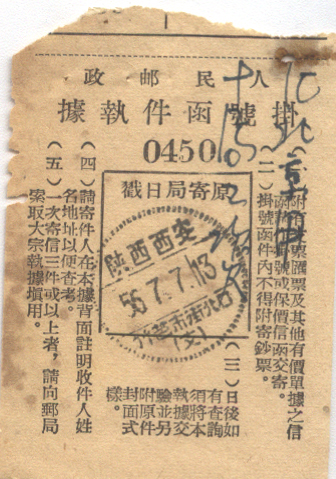 人民邮政
掛號函件執據
0450
原寄局日戳
陝西西安
56.7.7.13
(支)
(一)附有鈔票匯票及其他有價單據之信
函應作掛號或保價信函交寄。
(二)掛號函件內不得附寄鈔票。
(三)日後如
有查詢
須將本
執據交
驗並另
附原件
封面式
樣。
(四)請寄件人在本據背面註明收件人姓
名地址以便查考。
(五)一次寄信三件或以上者,請向郵局
索取大宗執據填用。